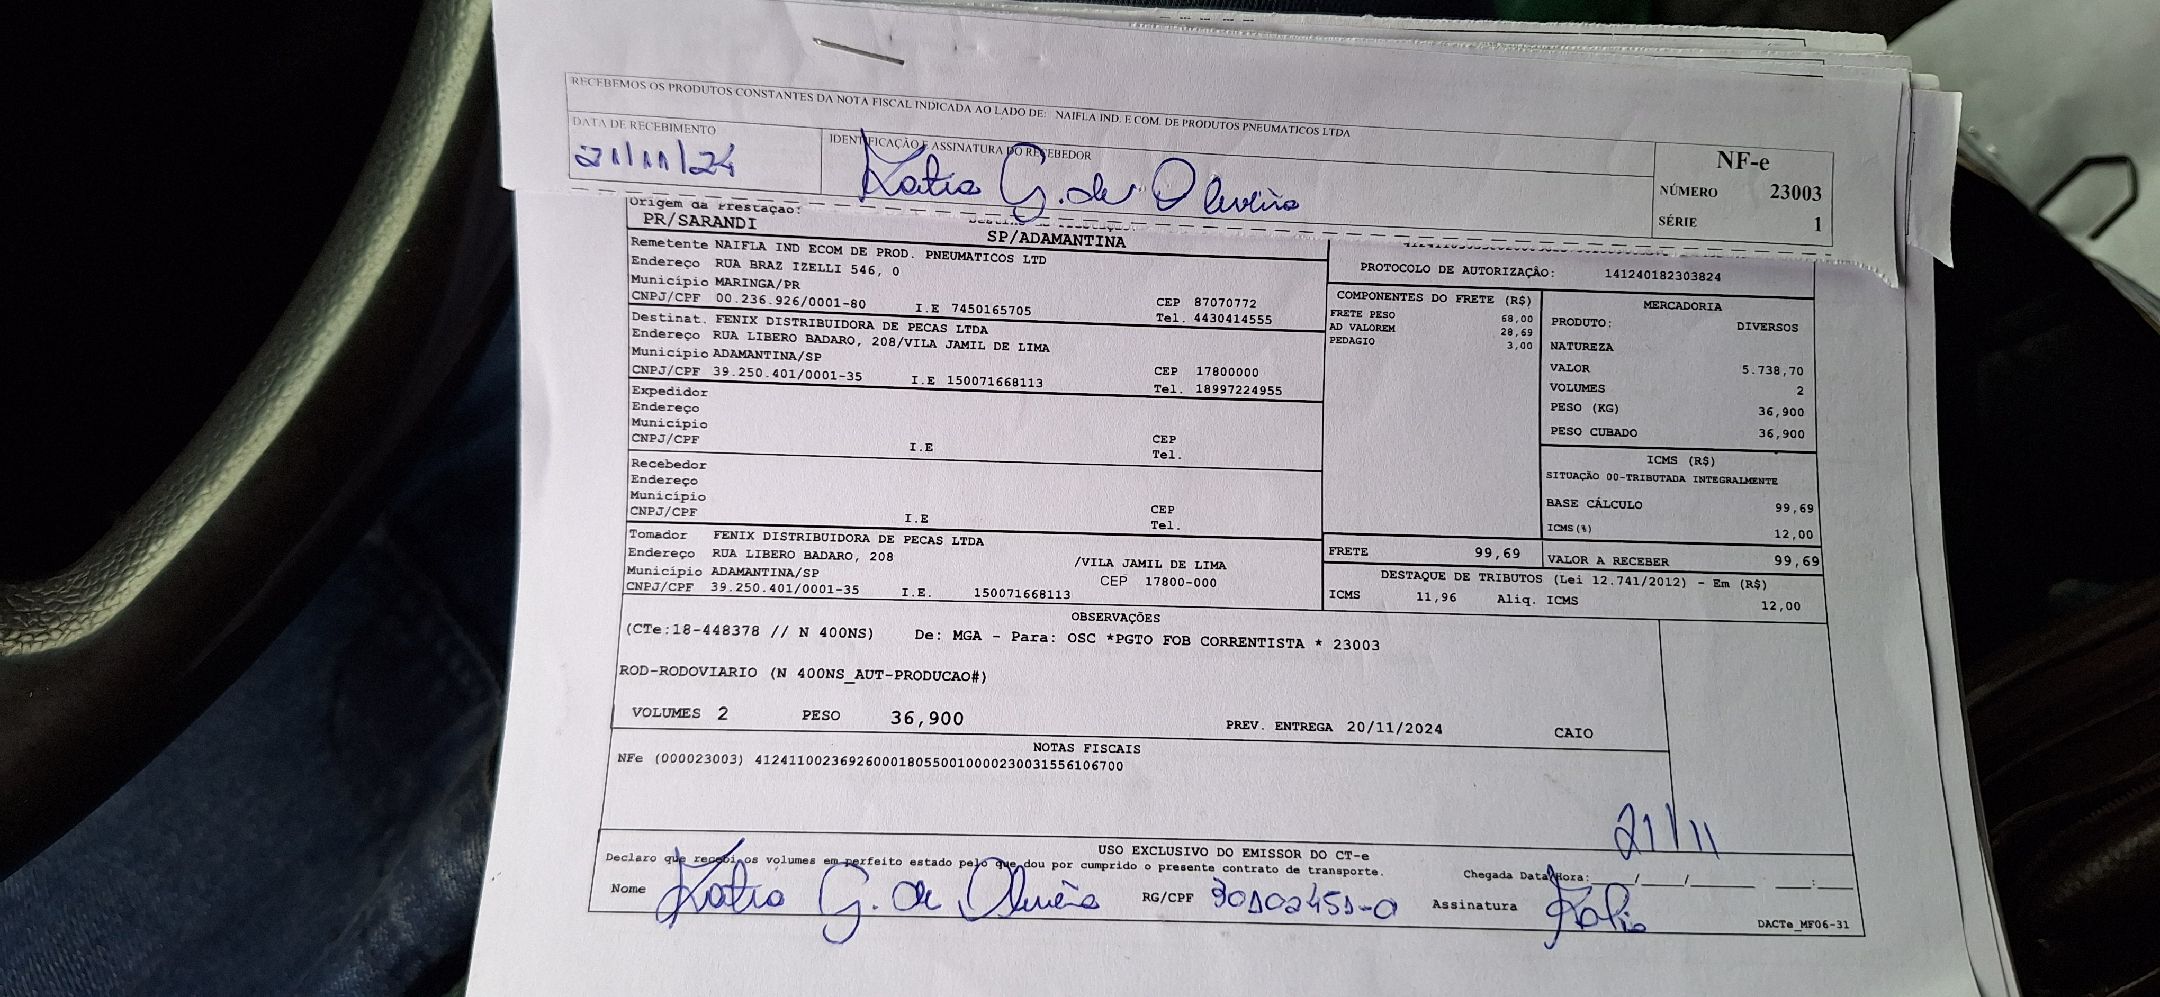 RECEBEMOS OS PRODUTOS CONSTANTES DA NOTA FISCAL INDICADA AO LADO DE: NAIFLA IND. E COM. DE PRODUTOS PNEUMATICOS LTDA
DATA DE RECEBIMENTO
21/11/24
IDENTIFICAÇÃO E ASSINATURA DO RECEBEDOR
Katia G. de Oliveira
NF-e
NÚMERO 23003
SÉRIE 1
Origem da Prestação:
PR/SARANDI
SP/ADAMANTINA
Remetente NAIFLA IND ECOM DE PROD. PNEUMATICOS LTD
Endereço RUA BRAZ IZELLI 546, 0
Município MARINGA/PR
CNPJ/CPF 00.236.926/0001-80 I.E 7450165705
CEP 87070772
Tel. 4430414555
Destinat. FENIX DISTRIBUIDORA DE PECAS LTDA
Endereço RUA LIBERO BADARO, 208/VILA JAMIL DE LIMA
Município ADAMANTINA/SP
CNPJ/CPF 39.250.401/0001-35 I.E 150071668113
CEP 17800000
Tel. 18997224955
Expedidor
Endereço
Município
CNPJ/CPF I.E
CEP
Tel.
Recebedor
Endereço
Município
CNPJ/CPF I.E
CEP
Tel.
Tomador FENIX DISTRIBUIDORA DE PECAS LTDA
Endereço RUA LIBERO BADARO, 208 /VILA JAMIL DE LIMA
Município ADAMANTINA/SP CEP 17800-000
CNPJ/CPF 39.250.401/0001-35 I.E. 150071668113
PROTOCOLO DE AUTORIZAÇÃO: 141240182303824
COMPONENTES DO FRETE (R$)
FRETE PESO 68,00
AD VALOREM 28,69
PEDAGIO 3,00
MERCADORIA
PRODUTO: DIVERSOS
NATUREZA
VALOR 5.738,70
VOLUMES 2
PESO (KG) 36,900
PESO CUBADO 36,900
ICMS (R$)
SITUAÇÃO 00-TRIBUTADA INTEGRALMENTE
BASE CÁLCULO 99,69
ICMS(%) 12,00
FRETE 99,69
VALOR A RECEBER 99,69
DESTAQUE DE TRIBUTOS (Lei 12.741/2012) - Em (R$)
ICMS 11,96 Aliq. ICMS 12,00
OBSERVAÇÕES
(CTe:18-448378 // N 400NS) De: MGA - Para: OSC *PGTO FOB CORRENTISTA * 23003
ROD-RODOVIARIO (N 400NS_AUT-PRODUCAO#)
VOLUMES 2 PESO 36,900 PREV. ENTREGA 20/11/2024 CAIO
NOTAS FISCAIS
NFe (000023003) 41241100236926000180550010000230031556106700
21/11
USO EXCLUSIVO DO EMISSOR DO CT-e
Declaro que recebi os volumes em perfeito estado pelo que dou por cumprido o presente contrato de transporte.
Chegada Data/Hora:____/____/______ ___:___
Nome Katia G. de Oliveira RG/CPF 30102451-0 Assinatura Katia
DACTe_MF06-31